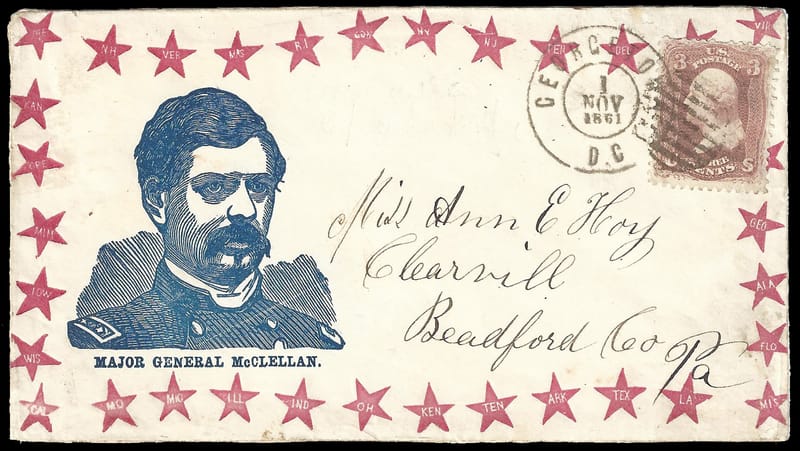 ME
NH
VER
MAS
R.I
CON
NY
NJ
PEN
DEL
VIR
KAN
ORE
MIN
IOW
WIS
CAL
MO
MIC
ILL
IND
OH
KEN
TEN
ARK
TEX
LA
MIS
FLO
ALA
GEO
GEORGETOWN
1
NOV
1861
D.C
U.S.
POSTAGE
3 3
CENTS
MAJOR GENERAL McCLELLAN.
Miss Ann E Hoy
Clearvill
Beadford Co Pa